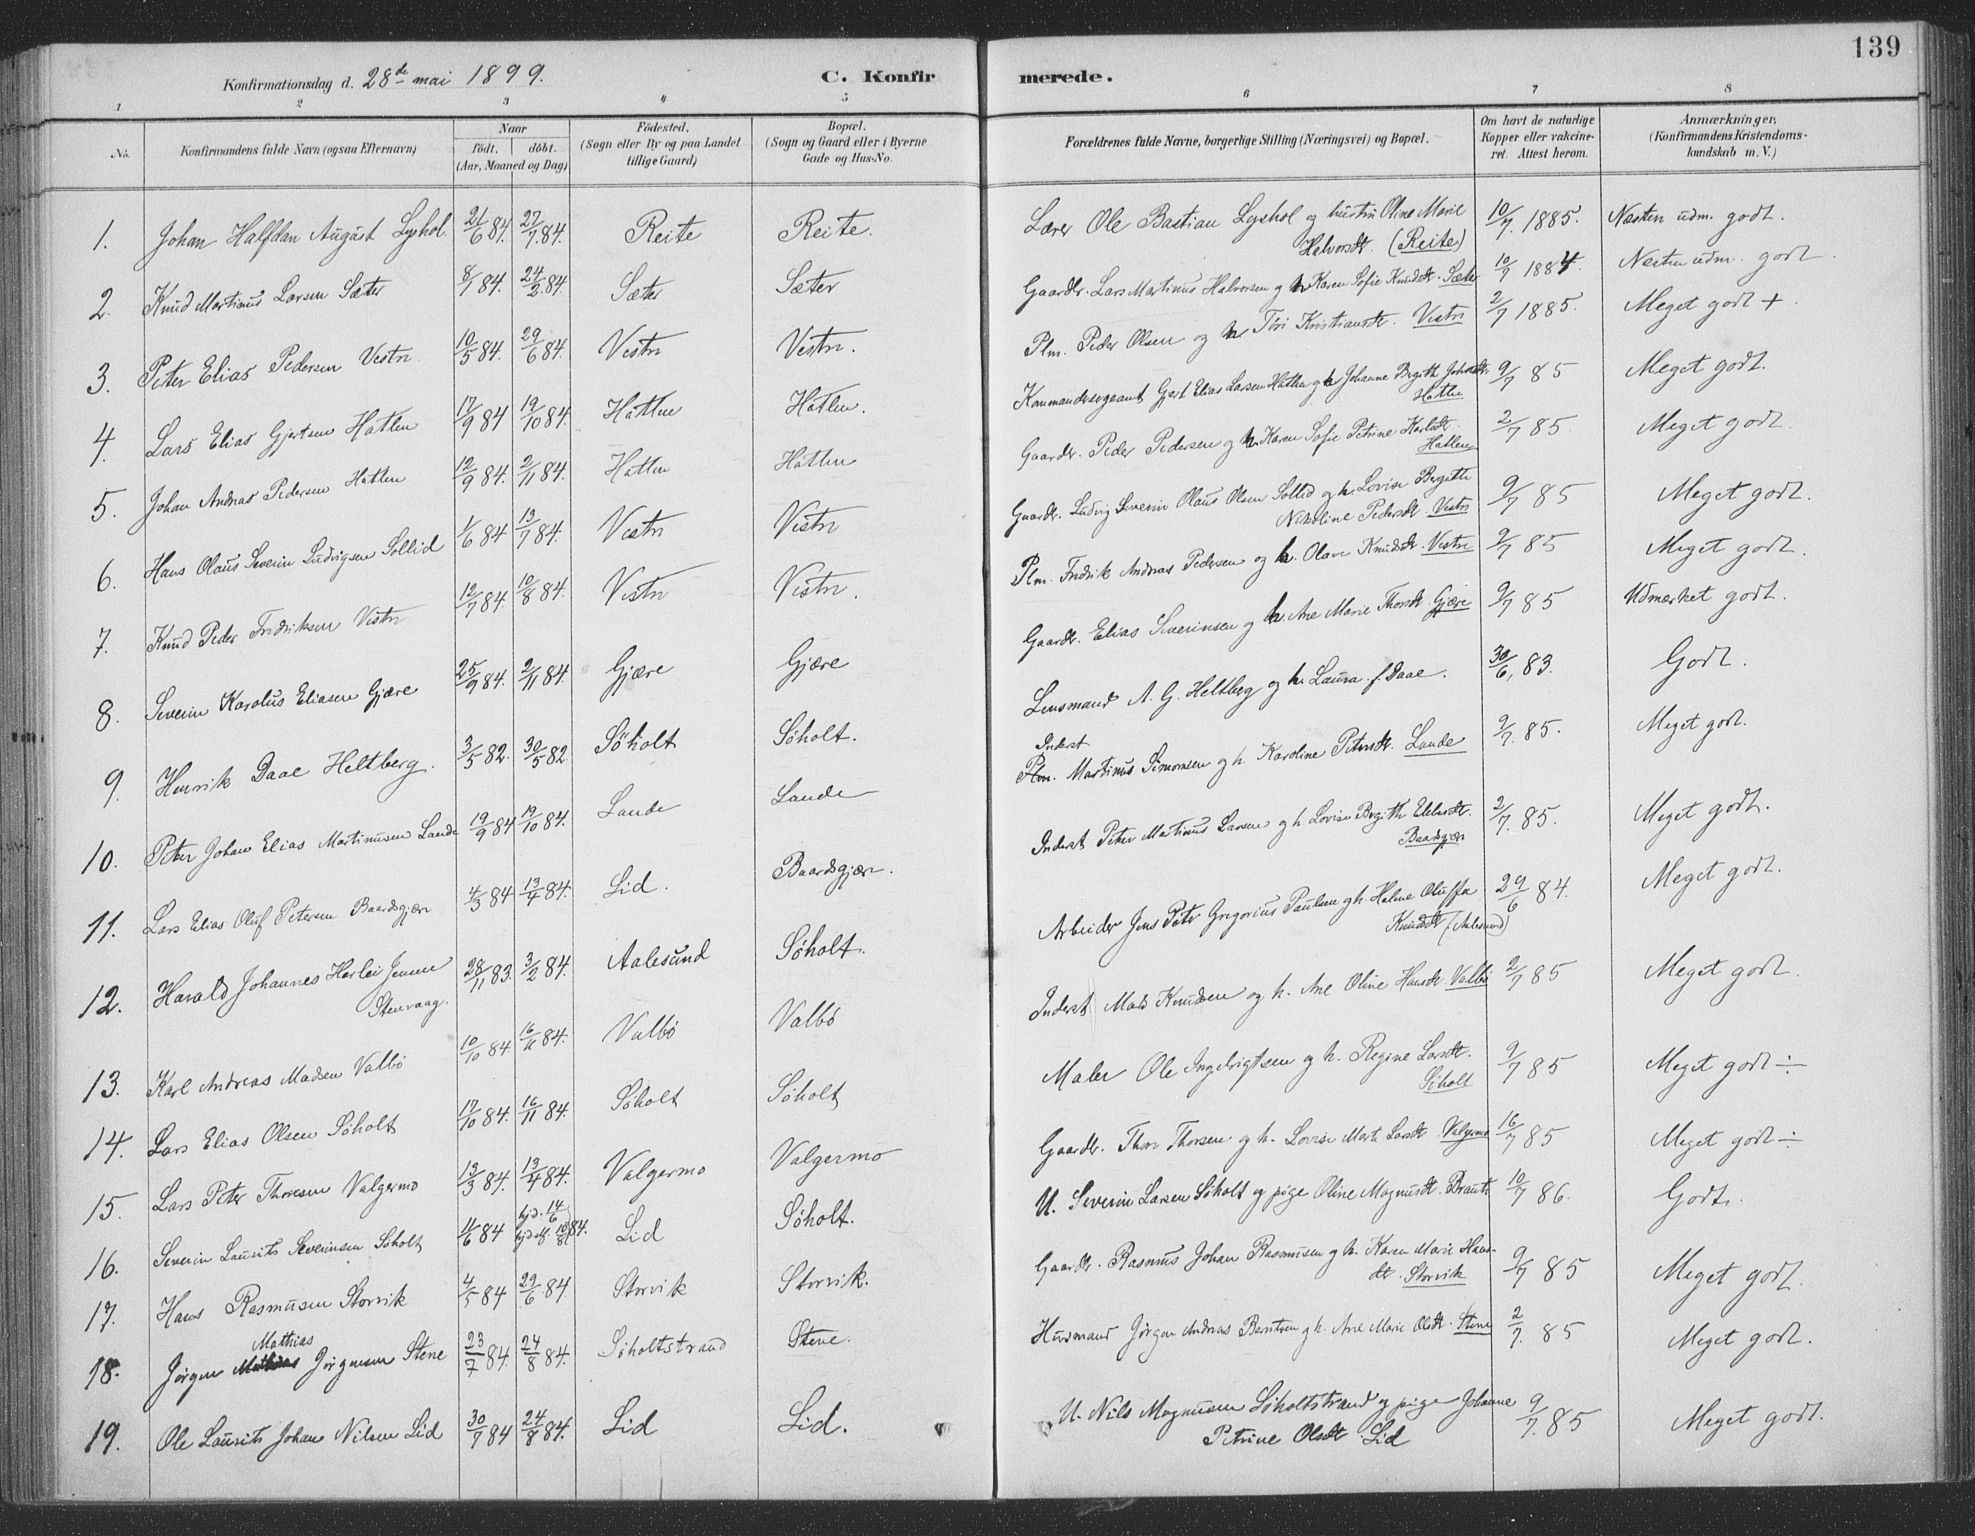 139
Konfirmationsdag d. 28de mai 1899.
C. Konfirmerede.
1 2 3 4 5 6 7 8
No.
Konfirmandens fulde Navn (ogsaa Efternavn)
Naar
födt. döbt.
(Aar, Maaned og Dag)
Födested.
(Sogn eller By og paa Landet
tillige Gaard)
Bopæl.
(Sogn og Gaard eller i Byerne
Gade og Hus-No.
Forældrenes fulde Navne, borgerlige Stilling (Næringsvei) og Bopæl.
Om havt de naturlige
Kopper eller vakcine-
ret. Attest herom.
Anmærkninger,
(Konfirmandens Kristendoms-
kundskab m. V.)
1. Johan Halfdan August Lyshol. 21/6 84. 27/7 84. Reite Reite. Lærer Ole Bastian Lyshol og hustru Oline Marie
Halvorsdt. (Reite) 10/7. 1885. Næsten udm. godt.
2. Knud Martinus Larsen Sæter 8/1 84. 24/2. 84 Sæter Sæter Gaardbr. Lars Martinus Halvorsen og h. Karen Sofie Knudsdt. Sæter 10/7 1884. Næsten udm. godt.
3. Peter Elias Pedersen Vestre 10/5 84. 29/6 84. Vestre Vestre. Plm. Peder Olsen og h. Töri Kristiansdt. Vestre 2/7 1885. Meget godt +.
4. Lars Elias Gjertsen Hatlen 17/9 84 19/10 84. Hatlen Hatlen. Kommandersergeant Gjert Elias Larsen Hatlen og h Johanne Birgith
Hatlen 9/7 85 Meget godt.
5. Johan Andreas Pedersen Hatlen 12/9 84. 2/11 84. Hatlen Hatlen Gaardbr. Peder Pedersen og h. Karen Sofie Petrine
Hatlen 2/7 85. Meget godt.
6. Hans Olaus Severin Ludvigsen Sollid 1/6 84 13/7 84. Vestre Vestre Gaardbr. Ludvig Severin Olaus Olsen Sollid og h. Lovise Birgitte
Nikoline Pedersdt. Vestre 9/7 85 Meget godt.
7. Knud Peder Fredriksen Vestre 12/7 84. 10/8 84. Vestre Vestre. Plm. Fredrik Andreas Pedersen og h. Olave Knudsdt. Vestre 9/7 85 Meget godt.
8. Severin Karolus Eliasen Gjære 25/9 84. 2/11 84. Gjære Gjære Gaardbr. Elias Severinsen og h. Ane Marie Thorsdt. Gjære 9/7 85 Udmærket godt.
9. Henrik Daae Heltberg. 3/5 82. 30/5 82 Söholt Söholt. Lensmand A. G. Heltberg og h. Laura f. Daae. 30/6, 83. Godt.
10. Peter Johan Elias Martinusen Lande 19/9 84 19/10 84. Lande Lande Inderst
Plm. Martinus Simonsen og h. Karoline Petersdt. Lande 9/7. 85. Meget godt.
11. Lars Elias Oluf Petersen Baardsgjære 4/3 84 13/4 84. Lid. Baardsgjære. Inderst Peter Martinus Larsen og h. Lovise Birgith
Baardsgjære 2/7. 85. Meget godt.
12. Harald Johannes Herlei Jensen
Stenvaag. 28/11 83. 3/2 84. Aalesund Söholt. Arbeider Jens Peter Gregorius Paulsen og h. Helene Oluffa
Knudsdt (Aalesund) 29/6 84. Meget godt.
13. Karl Andreas Madsen Valbö 10/10 84 16/11 84. Valbö Valbö Inderst Mads Knudsen og h. Ane Oline Hansdt. Valbö 2/7 85 Meget godt.
14. Lars Elias Olsen Söholt 17/10 84. 16/11 84. Söholt Söholt Maler Ole Ingebrigtsen og h. Regine Larsdt.
Söholt 9/7 85 Meget godt ÷
15. Lars Peter Thoresen Valgermo 13/3 84. 13/4 84. Valgermo Valgermo Gaardbr. Thore Thorsen og h. Lovise Marte Larsdt. Valgermo 16/7 85 Meget godt ÷
16. Severin Laurits Severinsen Söholt 11/6 84 hjd. 14/6
84. Lid Söholt. U. Severin Larsen Söholt og pige Oline Magnusdt. 10/7 86. Godt.
17. Hans Rasmusen Storvik 4/5 84 29/6 84. Storvik Storvik. Gaardbr. Rasmus Johan Rasmusen og h. Karen Marie Hans-
dt. Storvik 9/7 85 Meget godt.
18. Jørgen Mathias Jørgensen Stene 23/7 84. 24/8 84. Söholtstrand Stene. Husmand Jørgen Andreas Berntsen og h. Ane Marie Olsdt. Stene 2/7. 85 Meget godt.
19. Ole Laurits Johan Nilsen Lid 30/7 84 24/8 84. Lid Lid. U. Nils Magnusen Söholtstrand og pige Johanne
Petrine Olsdt. Lid 9/7. 85 Meget godt.